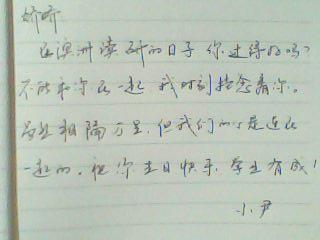 娇娇
在澳洲读研的日子你过得好吗?
不能和你在一起 我时刻挂念着你。
虽然相隔万里,但我们的心是连在
一起的。祝你生日快乐,学业有成!
小尹